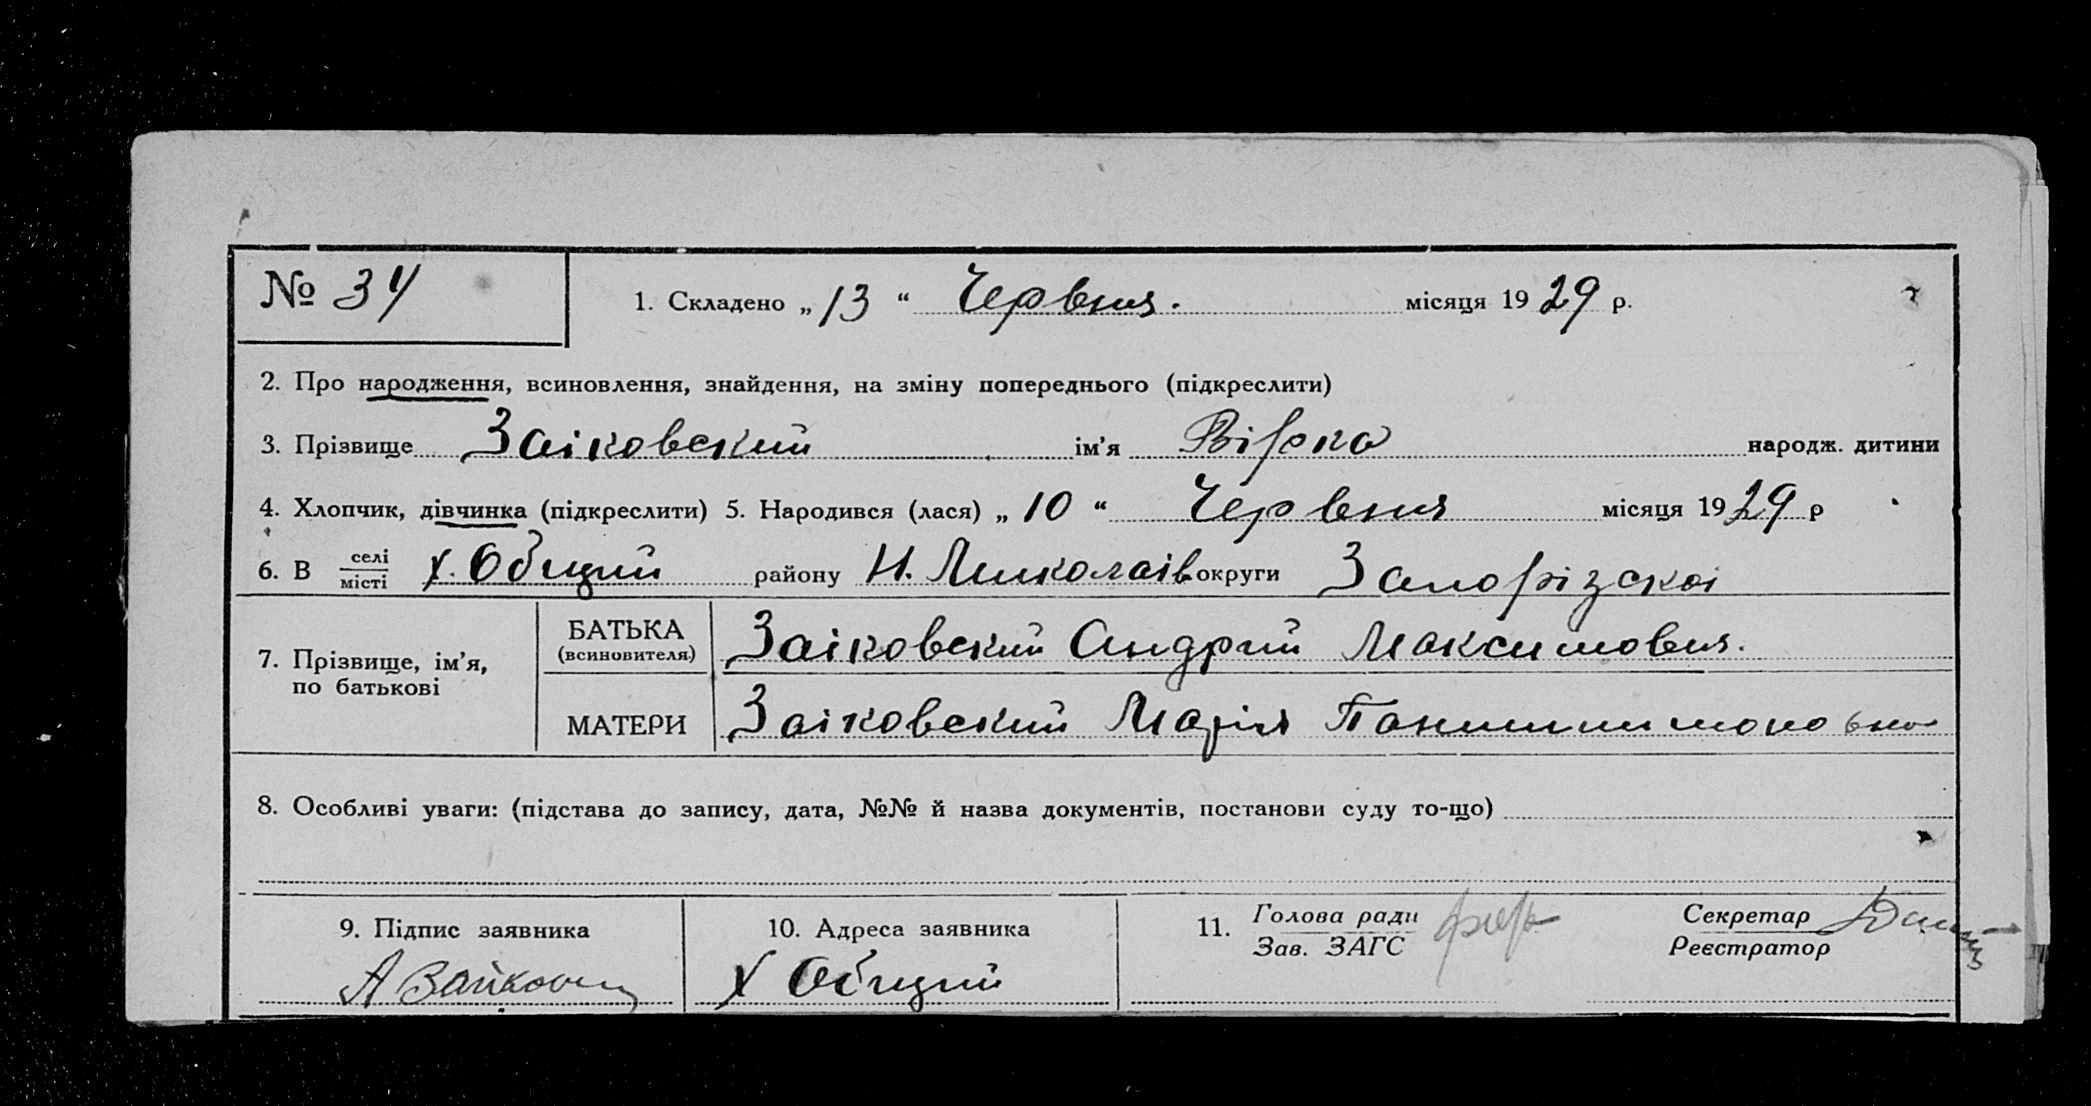 № 34 1. Складено „ 13 “ Червня. місяця 19 29 р.
2. Про народження, всиновлення, знайдення, на зміну попереднього (підкреслити)
3. Прізвище Заіковский ім’я Вірка народж. дитини
4. Хлопчик, дівчинка (підкреслити) 5. Народився (лася) „ 10 “ Червня місяця 19 29 р
6. В селі місті х. Общий району Н. Миколаїв округи Запорізскоі
7. Прізвище, ім’я, по батькові
БАТЬКА (всиновителя) Заіковский Андрий Максимович.
МАТЕРИ Заіковский Марія
8. Особливі уваги: (підстава до запису, дата, №№ й назва документів, постанови суду то-що)
9. Підпис заявника 10. Адреса заявника 11. Голова ради Зав. ЗАГС Секретар Реєстратор
А Х Общий